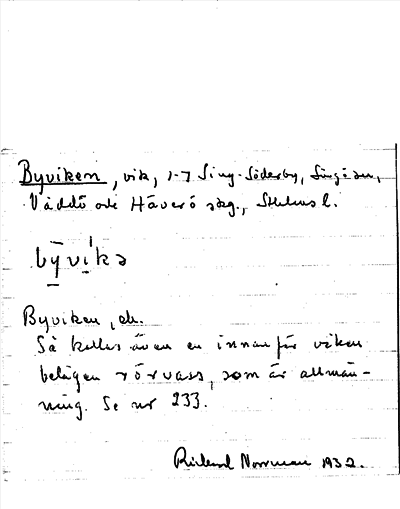 Byviken, vik, 1-7 Sing-Söderby, Singö sn,
Väddö och Häverö skg., Sthlms l.
bȳvi̱kə
Byviken, äb.
Så kallas även en innanför viken
belägen rörvass, som är allmän-
ning. Se nr 233.
Rickard Norrman 1932.